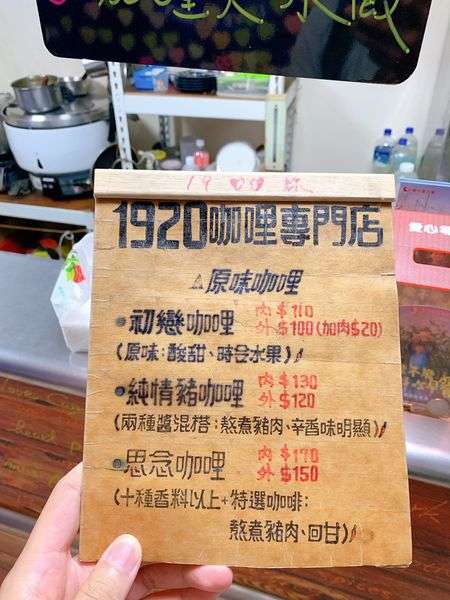 1920咖哩專門店
△原味咖哩
●初戀咖哩 內$110
外$100(加肉$20)
(原味:酸甜、時令水果)
●純情豬咖哩 內$130
外$120
(兩種醬混搭:熬煮豬肉、辛香味明顯)
●思念咖哩 內$170
外$150
(十種香料以上+特選咖啡:
熬煮豬肉、回甘)
愛心